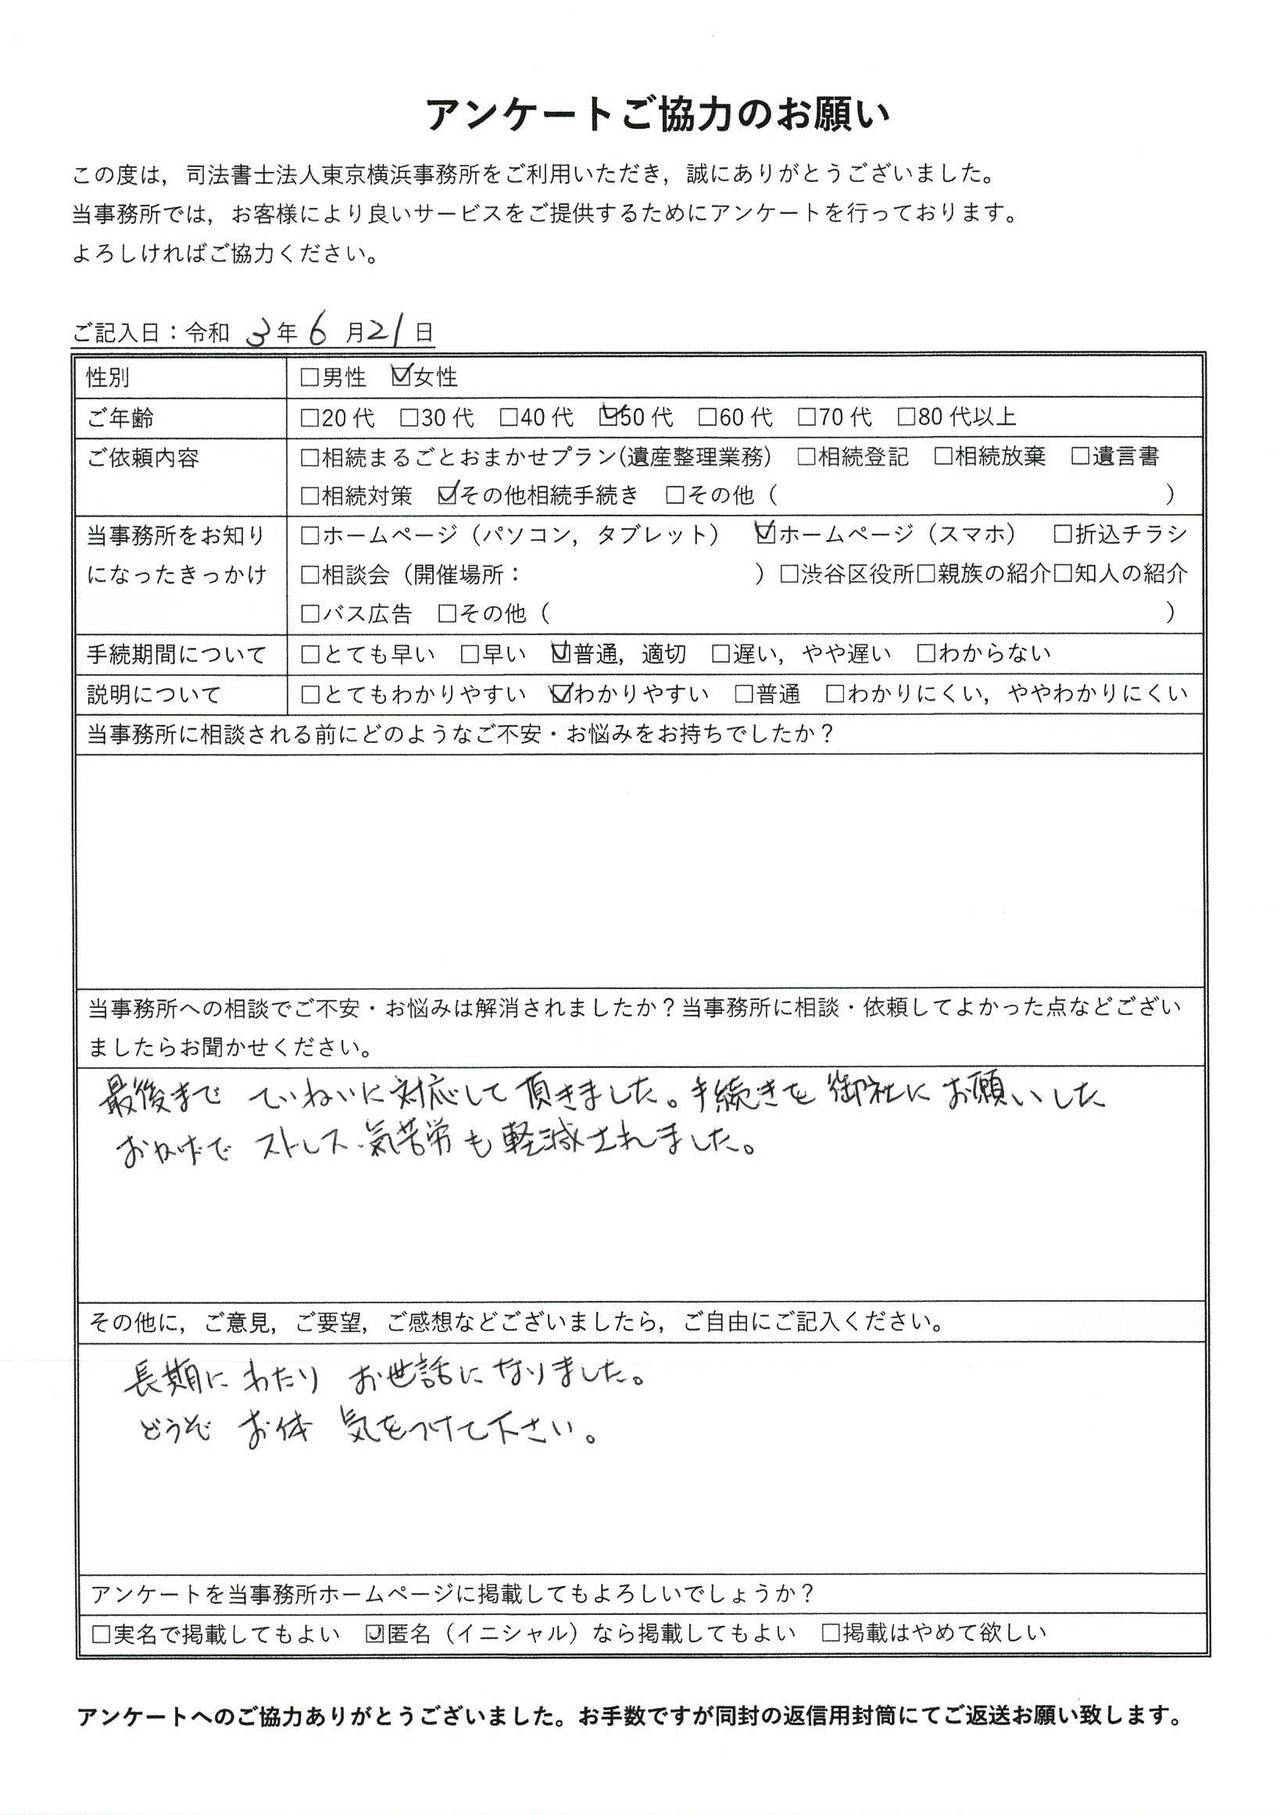 アンケートご協力のお願い
この度は，司法書士法人東京横浜事務所をご利用いただき，誠にありがとうございました。
当事務所では，お客様により良いサービスをご提供するためにアンケートを行っております。
よろしければご協力ください。
ご記入日：令和 3年 6 月21日
性別 □男性 ☑女性
ご年齢 □20代 □30代 □40代 ☑50代 □60代 □70代 □80代以上
ご依頼内容 □相続まるごとおまかせプラン(遺産整理業務) □相続登記 □相続放棄 □遺言書
□相続対策 ☑その他相続手続き □その他（ ）
当事務所をお知り □ホームページ（パソコン，タブレット） ☑ホームページ（スマホ） □折込チラシ
になったきっかけ □相談会（開催場所： ）□渋谷区役所□親族の紹介□知人の紹介
□バス広告 □その他（ ）
手続期間について □とても早い □早い ☑普通，適切 □遅い，やや遅い □わからない
説明について □とてもわかりやすい ☑わかりやすい □普通 □わかりにくい，ややわかりにくい
当事務所に相談される前にどのようなご不安・お悩みをお持ちでしたか？
当事務所への相談でご不安・お悩みは解消されましたか？当事務所に相談・依頼してよかった点などござい
ましたらお聞かせください。
最後まで ていねいに対応して頂きました。手続きを御社にお願いした
おかげで ストレス・氣苦労も軽減されました。
その他に，ご意見，ご要望，ご感想などございましたら，ご自由にご記入ください。
長期にわたり お世話になりました。
どうぞ お体 気をつけて下さい。
アンケートを当事務所ホームページに掲載してもよろしいでしょうか？
□実名で掲載してもよい ☑匿名（イニシャル）なら掲載してもよい □掲載はやめて欲しい
アンケートへのご協力ありがとうございました。お手数ですが同封の返信用封筒にてご返送お願い致します。